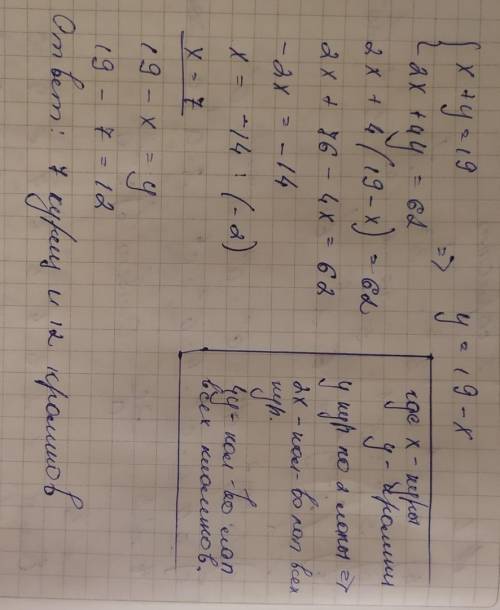 { x + y = 19
{ 2x + 4y = 62 => y = 19 - x
2x + 4(19 - x) = 62
2x + 76 - 4x = 62
-2x = -14
x = -14 : (-2)
x = 7
19 - x = y
19 - 7 = 12
Ответ: 7 куриц и 12 кроликов
где x - куры
y - кролики
у кур по 2 лапы =>
2x - кол-во лап всех
кур.
4y - кол-во лап
всех кроликов.